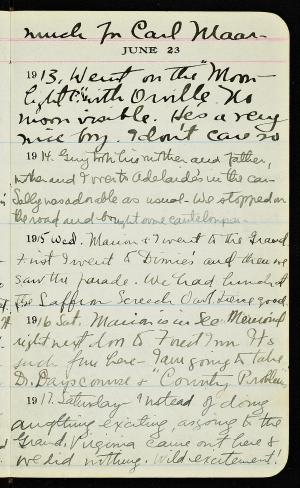 much for Carl Maar-
JUNE 23
1913. Went on the "Moon-
light" with Orville. No
moon visible. He's a very
nice boy. I don't care so
1914. Guy took his mother and father,
mother and I over to Adelaide's in the car
Sally was adorable as usual - We stopped on
the road and bought some cantaloupes -
1915 Wed. Marion & I went to the Grand
First I went to Dimies' and then we
saw the parade. We had lunch at
the Saffron Screech Owl. Service good
1916 Sat. Marion is in Memorial
right next door to Forest Inn. It's
such fun here - I am going to take
Dr. course & "Country Problems"
1917. Saturday - Instead of doing
anything exciting, as going to the
Grand, Virginia came out here &
we did nothing. Wild excitement!